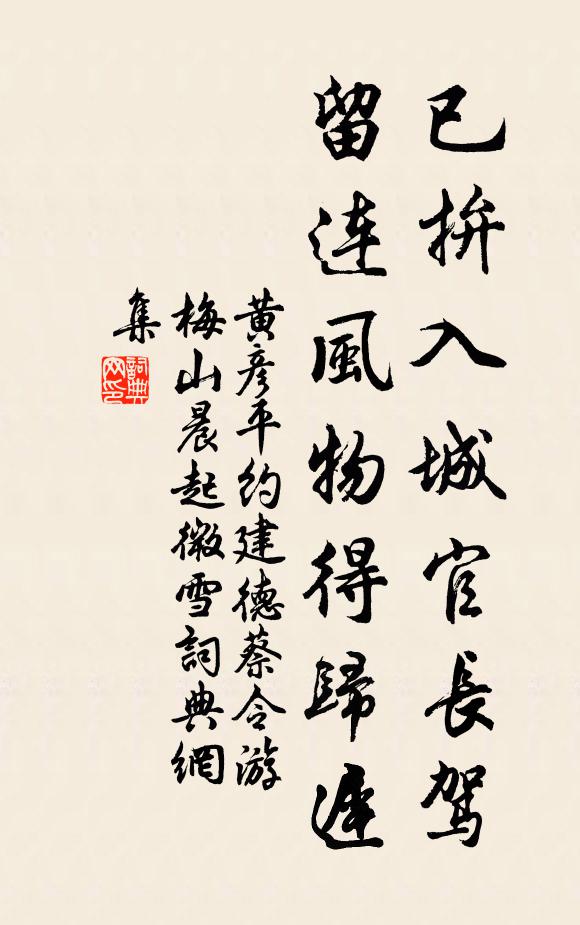 已拚入城官長駕
留連風物得歸遲
黃彥平約建德蔡令游
梅山晨起微雪詞典網
集
詞典
网印